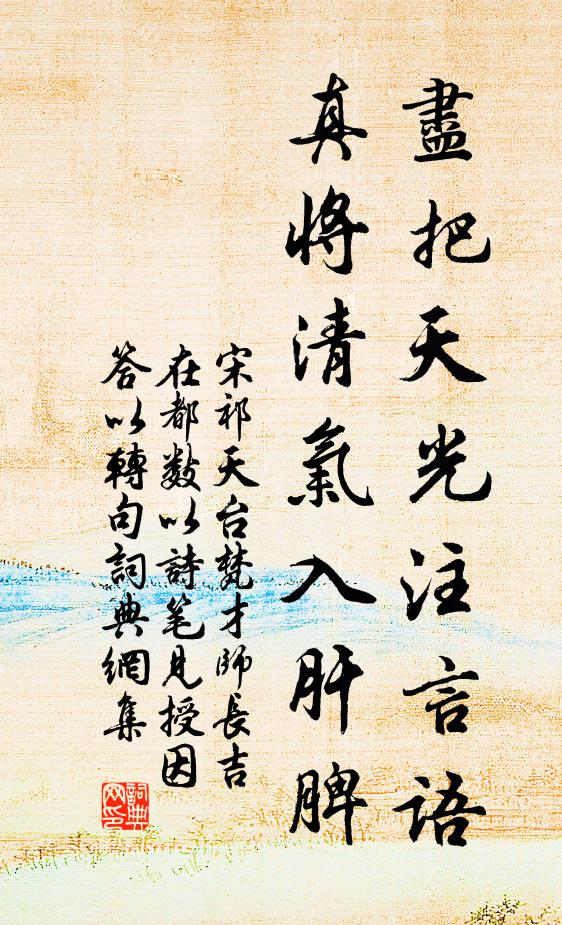 盡把天光注言语
真将清氣入肝脾
宋祁天台梵才師長吉
在都数以詩笔見授因
答以轉句詞典網集
詞典
网印